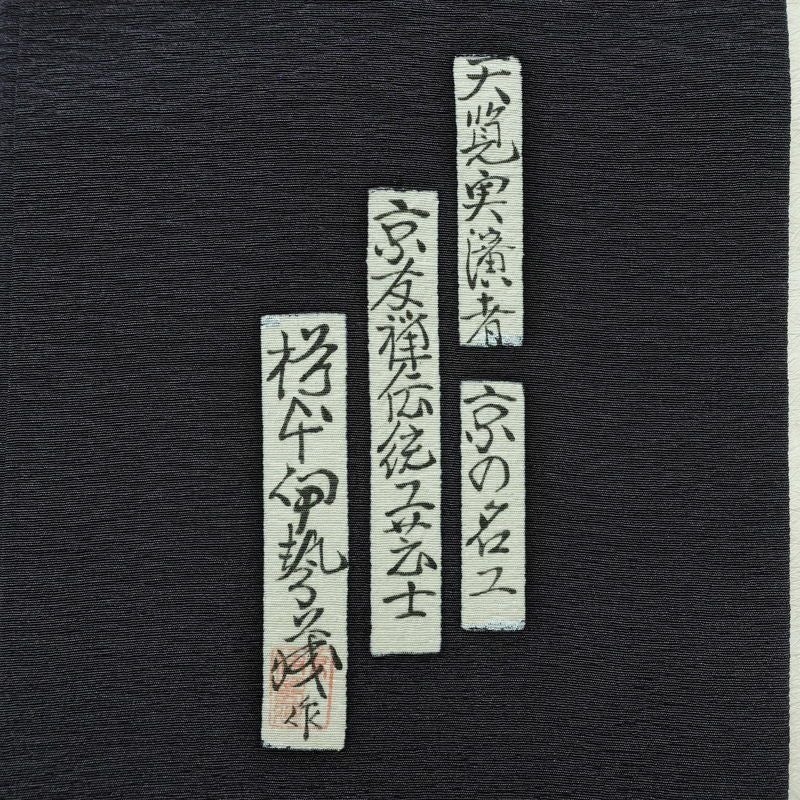 天覧実演者
京の名工
京友禅伝統工芸士
伊勢
作